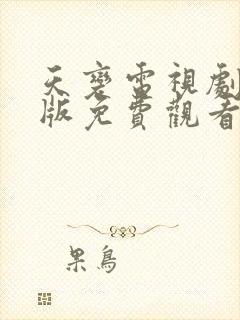 天変電視劇
版免費觀看
果鳥